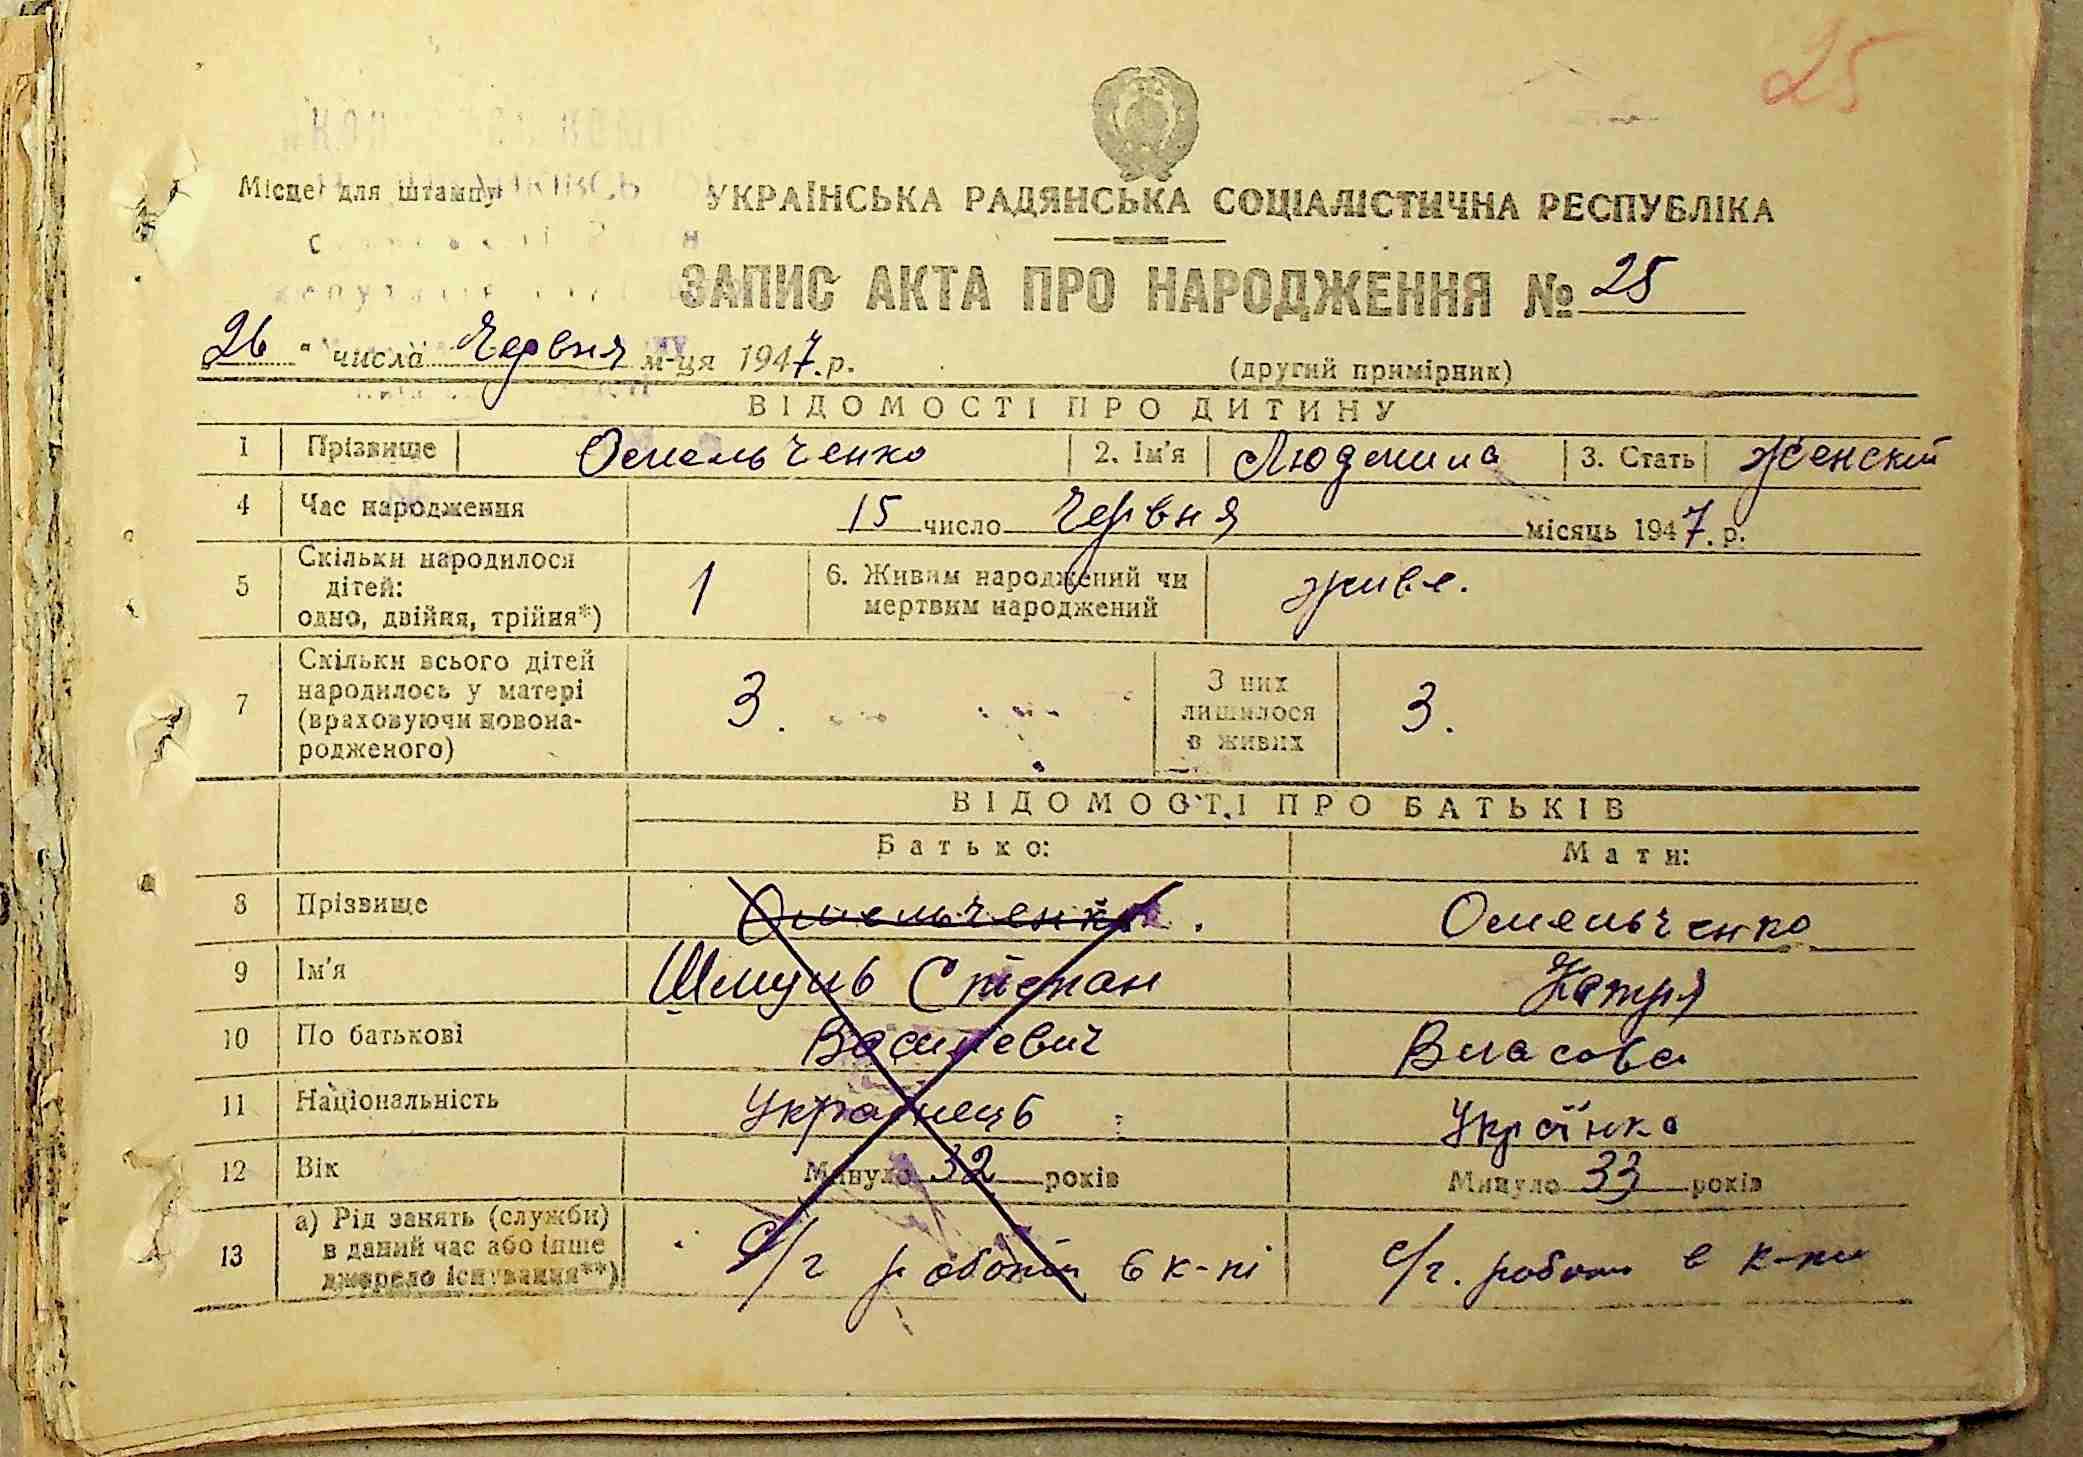 25
Місце для штампу
УКРАЇНСЬКА РАДЯНСЬКА СОЦІАЛІСТИЧНА РЕСПУБЛІКА
ЗАПИС АКТА ПРО НАРОДЖЕННЯ № 25
26 " числа Червня м-ця 1947.р.
(другий примірник)
ВІДОМОСТІ ПРО ДИТИНУ
1 Прізвище Омельченко 2. Ім'я Людмила 3. Стать женский
4 Час народження 15 число Червня місяць 1947.р.
5 Скільки народилося
дітей:
одно, двійня, трійня*)
1
6. Живим народжений чи
мертвим народжений
живе.
7 Скільки всього дітей
народилось у матері
(враховуючи новона-
родженого)
3.
З них
лишилося
в живих
3.
ВІДОМОСТІ ПРО БАТЬКІВ
Батько: Мати:
8 Прізвище Омельченко. Омельченко
9 Ім'я Степан Катря
10 По батькові Василевич Власова
11 Національність Українець Українка
12 Вік Минуло 32 років Минуло 33 років
13 а) Рід занять (служби)
в даний час або інше
джерело існування**)
с/г робота в к-пі с/г. робота в к-пи